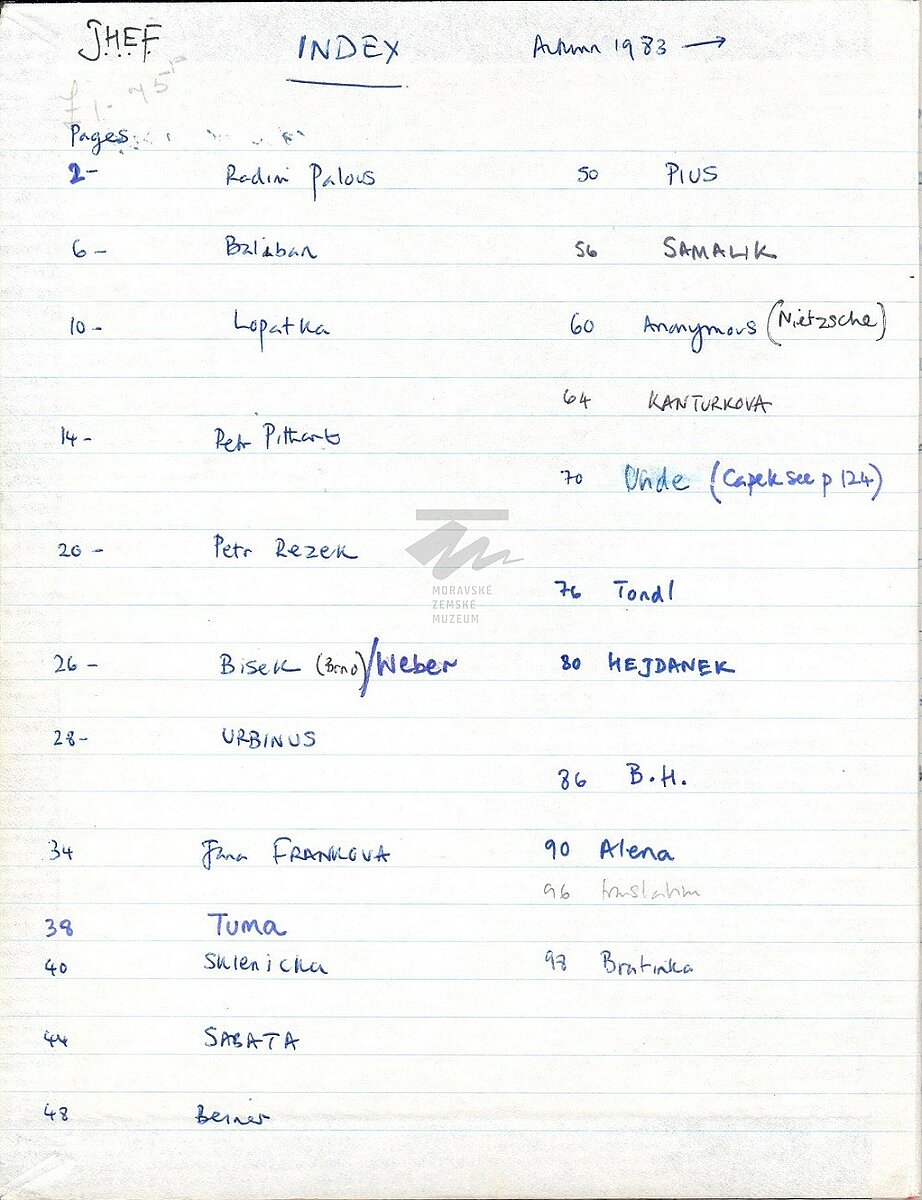 JHEF INDEX Autumn 1983 →
£1.45
Pages
2- Radim Palous
6- Balaban
10- Lopatka
14- Petr Pithart
20- Petr Rezek
26- Bisek (Brno)/Weber
28- URBINUS
34 Jana FRANKOVA
38 Tuma
40 Sklenicka
44 SABATA
48
50 PIUS
56 SAMALIK
60 Anonymous (Nietzsche)
64 KANTURKOVA
70 (Capek see p 124)
76 Tondl
80 HEJDANEK
86 B.H.
90 Alena
96 translation
98 Bratinka
MORAVSKÉ
ZEMSKÉ
MUZEUM